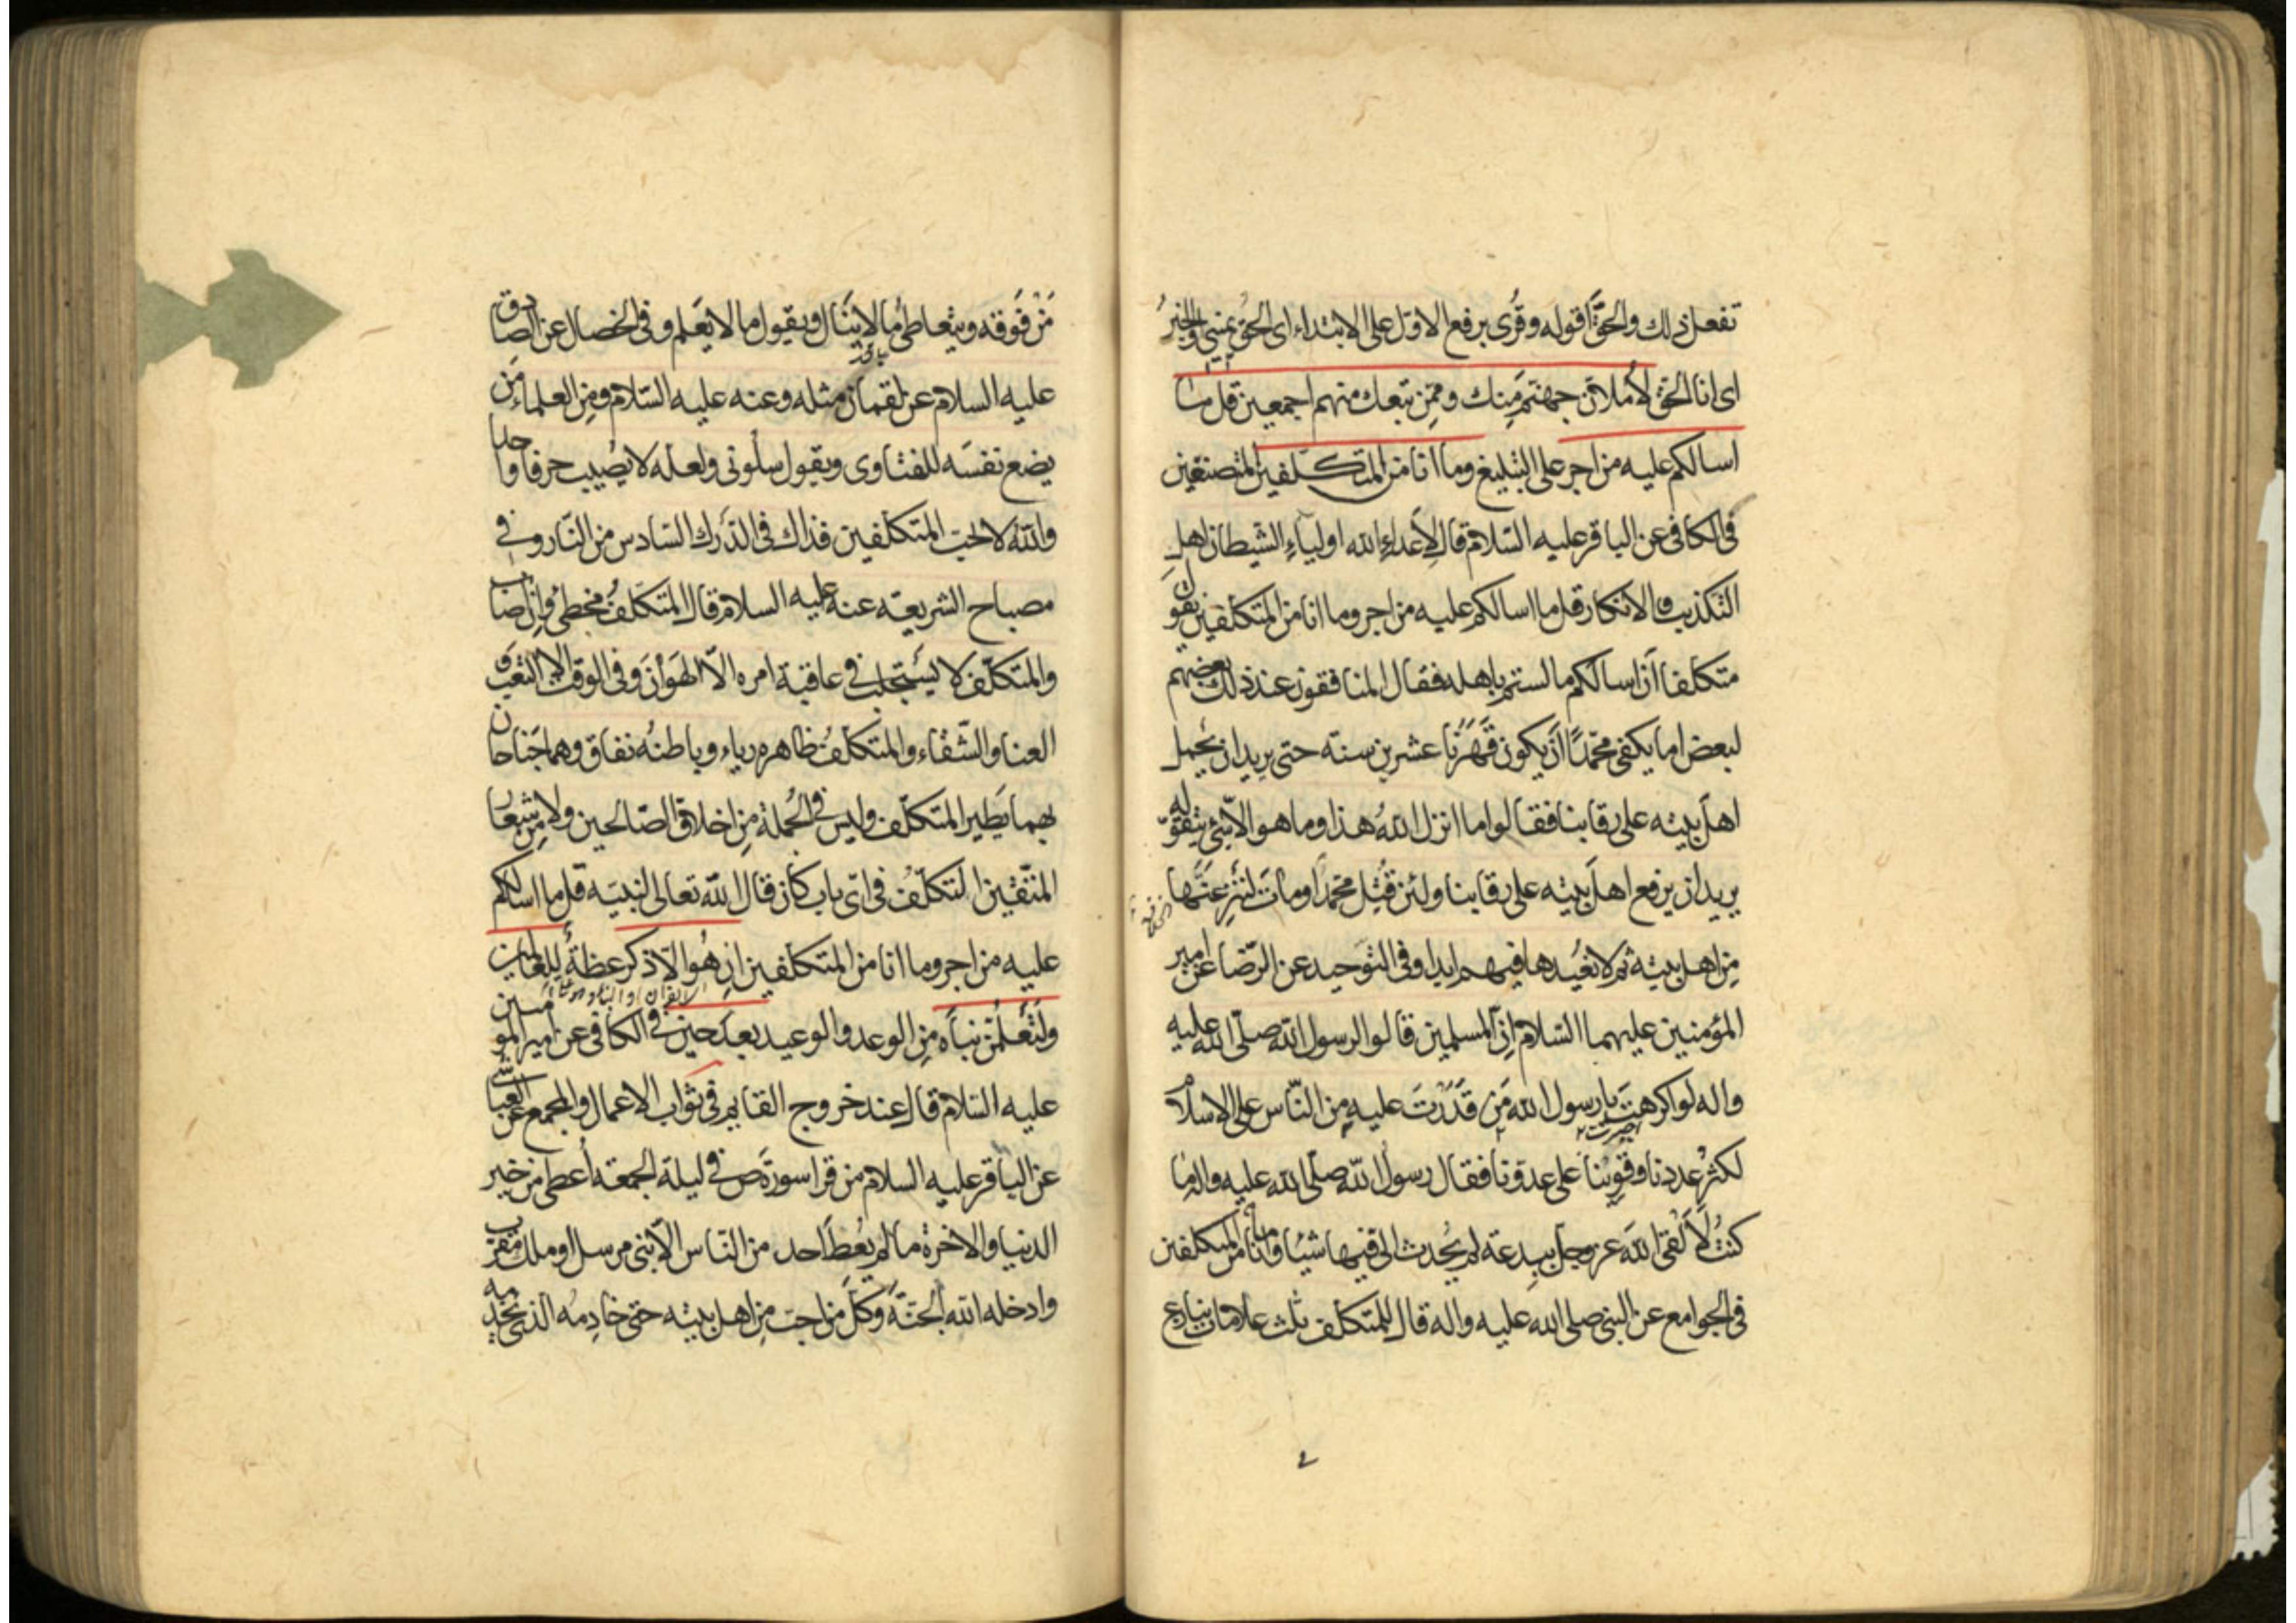 تفعل ذلك والحقَّ اقوله وقُرِى برفع الاوّل على الابتداء اى الحقّ يمينى والخبرُ
اى انا الحقّ لأملانّ جهنّم مِنك وممّن تبعك منهم اجمعين قل ما
اسالكم عليه من اجر على التبليغ وما انا من المتكلّفين المتصنّعين
فى الكافى عن الباقر عليه السّلام قال لأعداءِ الله اولياءِ الشيطان اهلِ
التكذيب والانكار قل ما اسالكم عليه من اجر وما انا من المتكلّفين يقول
متكلفا أن اسالكم ما لستم باهله فقال المنافقون عند ذلك بعضهم
لبعض اما يكفى محمّدًا أن يكون قَهَرَنا عشرين سنة حتى يريد ان يحمل
اهلَ بيته على رقابنا فقالوا ما انزل اللهُ هذا وما هو الّا شئ يتقوّله
يريد ان يرفع اهلَ بيته على رقابنا ولئن قُتِل محمّد او ماتَ لننزِعنّها
مِن اهل بيته ثم لا نعيدها فيهم ابدا وفى التوحيد عن الرّضا عن امير
المؤمنين عليهما السّلام إنّ المسلمين قالوا لرسول الله صلّى الله عليه
واله لو اكرهتَ يا رسول الله مَن قَدَرْتَ عليه مِن النّاس على الاسلام
لكثرُ عددنا وقوِينا على عدوّنا فقال رسول الله صلّى الله عليه واله ما
كنتُ لألقى اللهَ عزوجلّ ببدعة لم يُحدث الىّ فيها شيئا وما انا من المتكلفين
فى الجوامع عن النبى صلى الله عليه واله قال للمتكلّف ثلث علامات ينازع
مَنْ فَوقه ويتعاطى ما لا يَنَال ويقول ما لا يَعْلم وفى الخصال عن الصّادق
عليه السلام عن لقمان مثله وعنه عليه السّلام ومِن العلماء مَن
يضع نفسَه للفتاوى ويقول سلُونى ولعلّه لا يصيب حرفا واحدا
واللهُ لا يحبّ المتكلّفين فذاك فى الدّرك السّادس من النّار وفى
مصباح الشريعة عنه عليه السلام قال المتكلّفُ مخطئ وإن اصاب
والمتكلّف لا يستجلب فى عاقبة امره الّا الهَوانَ وفى الوقت الّا التعب و
العنا والشّقاء والمتكلّفُ ظاهره رياء وباطنُه نفاق وهما جَناحان
بهما يَطير المتكلّف وليس فى الجُملة مِن اخلاق الصّالحين ولا مِن شِعار
المتّقين التكلّفُ فى اىّ باب كان قال الله تعالى لنبيّه قل ما اسالكم
عليه من اجر وما انا من المتكلّفين إن هُو الّا ذكر عظةٌ للعالمين
ولتَعْلَمُنّ نباَه مِن الوعد والوعيد بعدَ حين فى الكافى عن امير المومنين
عليه السّلام قال عند خروج القايم فى ثواب الاعمال والمجمع عن العيّاشى
عن الباقر عليه السلام من قرا سورة ص فى ليلة الجمعة أعطى من خير
الدنيا والاخرة ما لم يُعْطَ احد من النّاس الّا نبى مرسل او ملك مقرّب
وادخله الله الجنّة وكلّ من احبّ مِن اهل بيته حتى خادِمُه الذى يخدمه